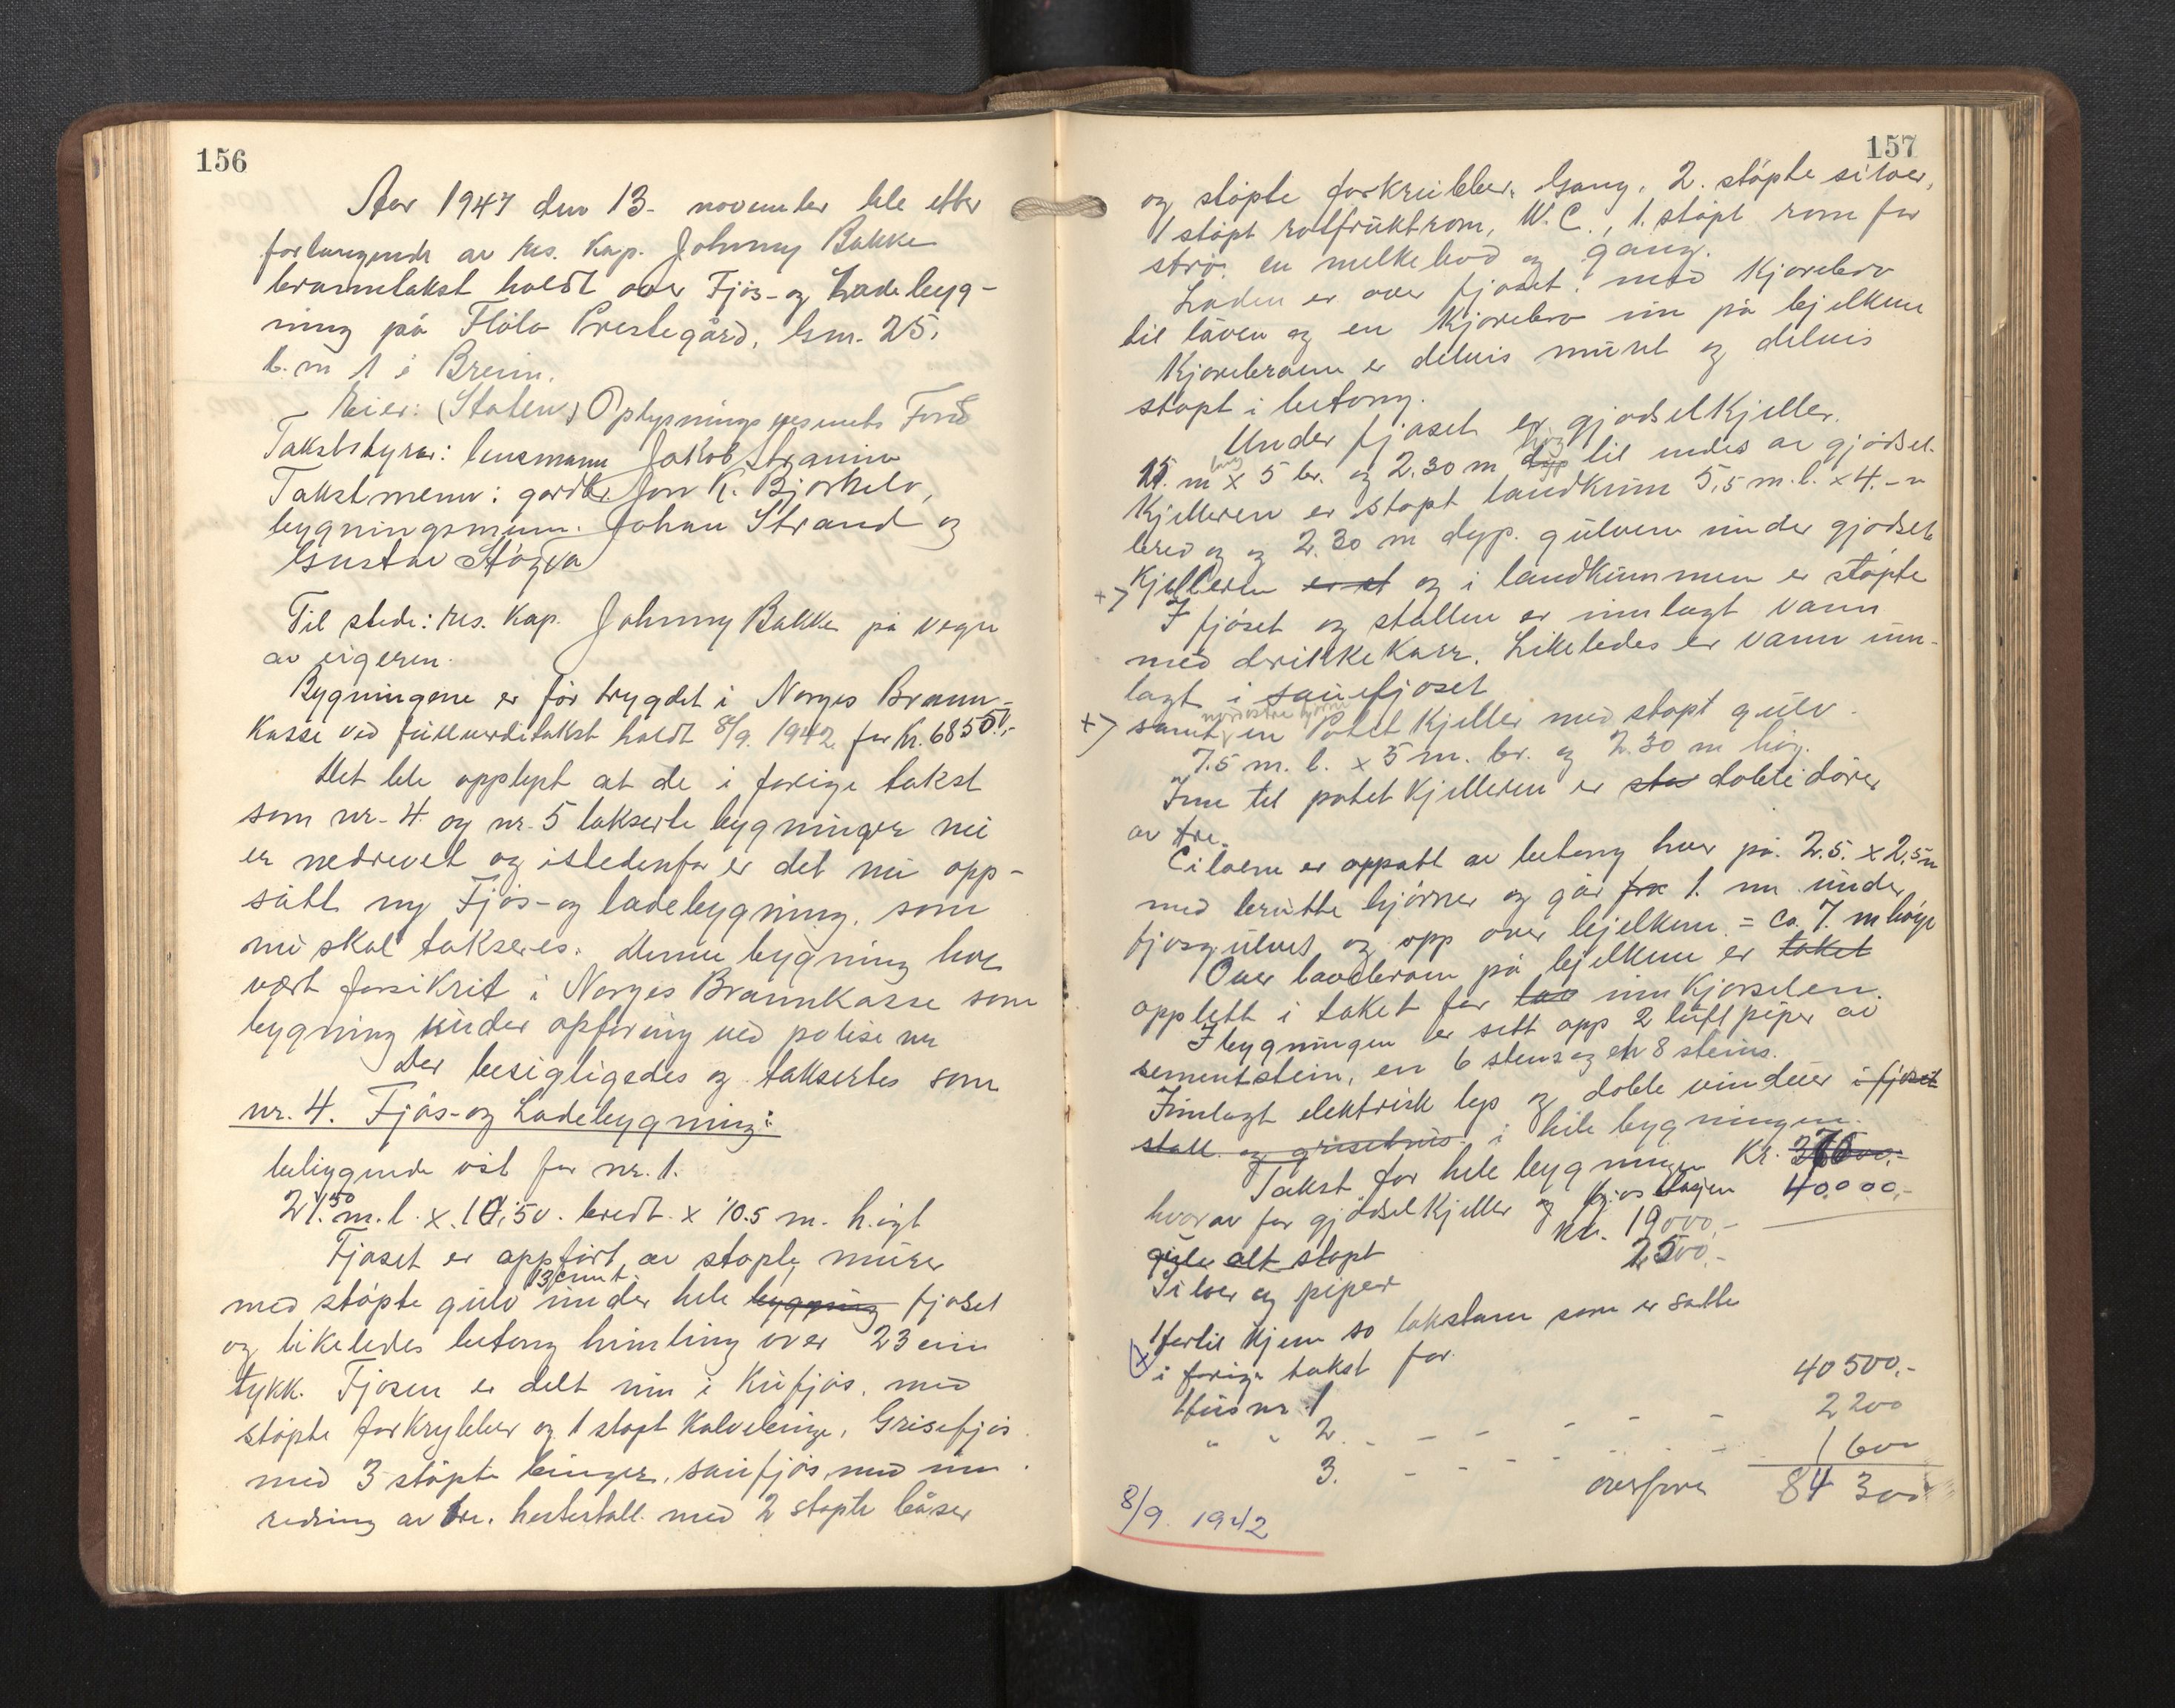 156
Aar 1947 den 13. november ble etter
forlangende av res. kap. Johnny Bakke
branntakst holdt over Fjøs- og Ladebyg-
ning på Flölo Prestegård, G.nr. 25,
b. nr 1 i Breim.
Eier: (Staten) Oplysningsvesenets Fond
Takstbestyrer: lensmann Jakob
Takstmenn: gardbr. Jon K. Bjørkelo,
bygningsmenn. Johan Strand og
Gustav
Til stede: res. kap. Johnny Bakke på vegne
av eigeren.
Bygningene er før trygdet i Norges Brann-
kasse ved fullverditakst holdt 8/9. 1942 for kr. 68550,-
Det ble opplyst at de i forige takst
som nr. 4 og nr. 5 takserte bygninger nu
er nedrevet og istedenfor er det nu opp-
satt ny Fjøs- og ladebygning, som
nu skal takseres. Denne bygning har
vært forsikrit i Norges Brannkasse som
bygning under opføring ved polise nr
Der besigtigedes og taksertes som
nr. 4. Fjøs- og Ladebygning:
beliggende øst for nr. 1.
21.50 m. l. x 10,50. bredt x 10.5 m. högt
Fjøset er oppført av støpte murer
med støpte gulv 13 cm t. under hele bygning fjøset
og likeledes betong himling over 23 cm
tykk. Fjøsen er delt inn i Kufjøs, med
støpte forkrybber og 1 støpt kalvebinge, Grisefjøs
med 3 støpte binger, saufjøs, med inn
redning av tre. hestestall med 2 støpte båser
157
og støpte forkrubber. Gang, 2. støpte siloer,
1 støpt rotfruktrom, W.C., 1. støpt rom for
strø. en melkebod og gang.
Laden er over fjøset. med kjørebro
til låven og en kjørebro inn på bjelkene
Kjørebroene er delvis muret og delvis
støpt i betong.
Under fjøset er gjødselkjeller.
15. m lang x 5 br. og 2.30 m dyp høg til endes av gjødsel-
kjelleren er støpt landkum 5,5 m. l. x 4. - "
bred og og 2.30 m dyp. gulvene under gjødsel
+> kjelleren er et og i landkummen er støpte
I fjøset og stallen er innlagt vann
med drikkekarr. Likeledes er vann inn-
lagt i sauefjøset
+> samt nordøstre hjørne en Potetkjeller med støpt gulv.
7.5 m. l. x 5 m. br. og 2.30 m høg.
Inn til potetkjelleren er stø doble dører
av tre.
Siloene er oppsatt av betong hver på 2.5. x 2,5 m
med brutte hjørner og går fra 1. m under
fjøsgulvet og opp over bjelkene. = ca 7. m høge
Over lavebroen på bjelkene er taket
opplett i taket for lav innkjørselen.
I bygningen er sett opp 2 luftpiper av
sementstein, en 6 steins og en 8 steins.
Innlagt elektrisk lys og doble vinduer i fjøset
stall og grisehus i hele bygningen.
Takst for hele bygningen Kr.
hvorav for gjødselkjeller og fjøs etasjen 40000,-
gulv alt støpt kr. 19000,-
Siloer og piper 2500,-
Hertil kjem so takstene som er satte
i forige takst for.
Hus nr. 1 40500,-
" " 2. - - - - - - 2200
3. - - - - - - - 1600
overføres 84 300
8/9. 1942